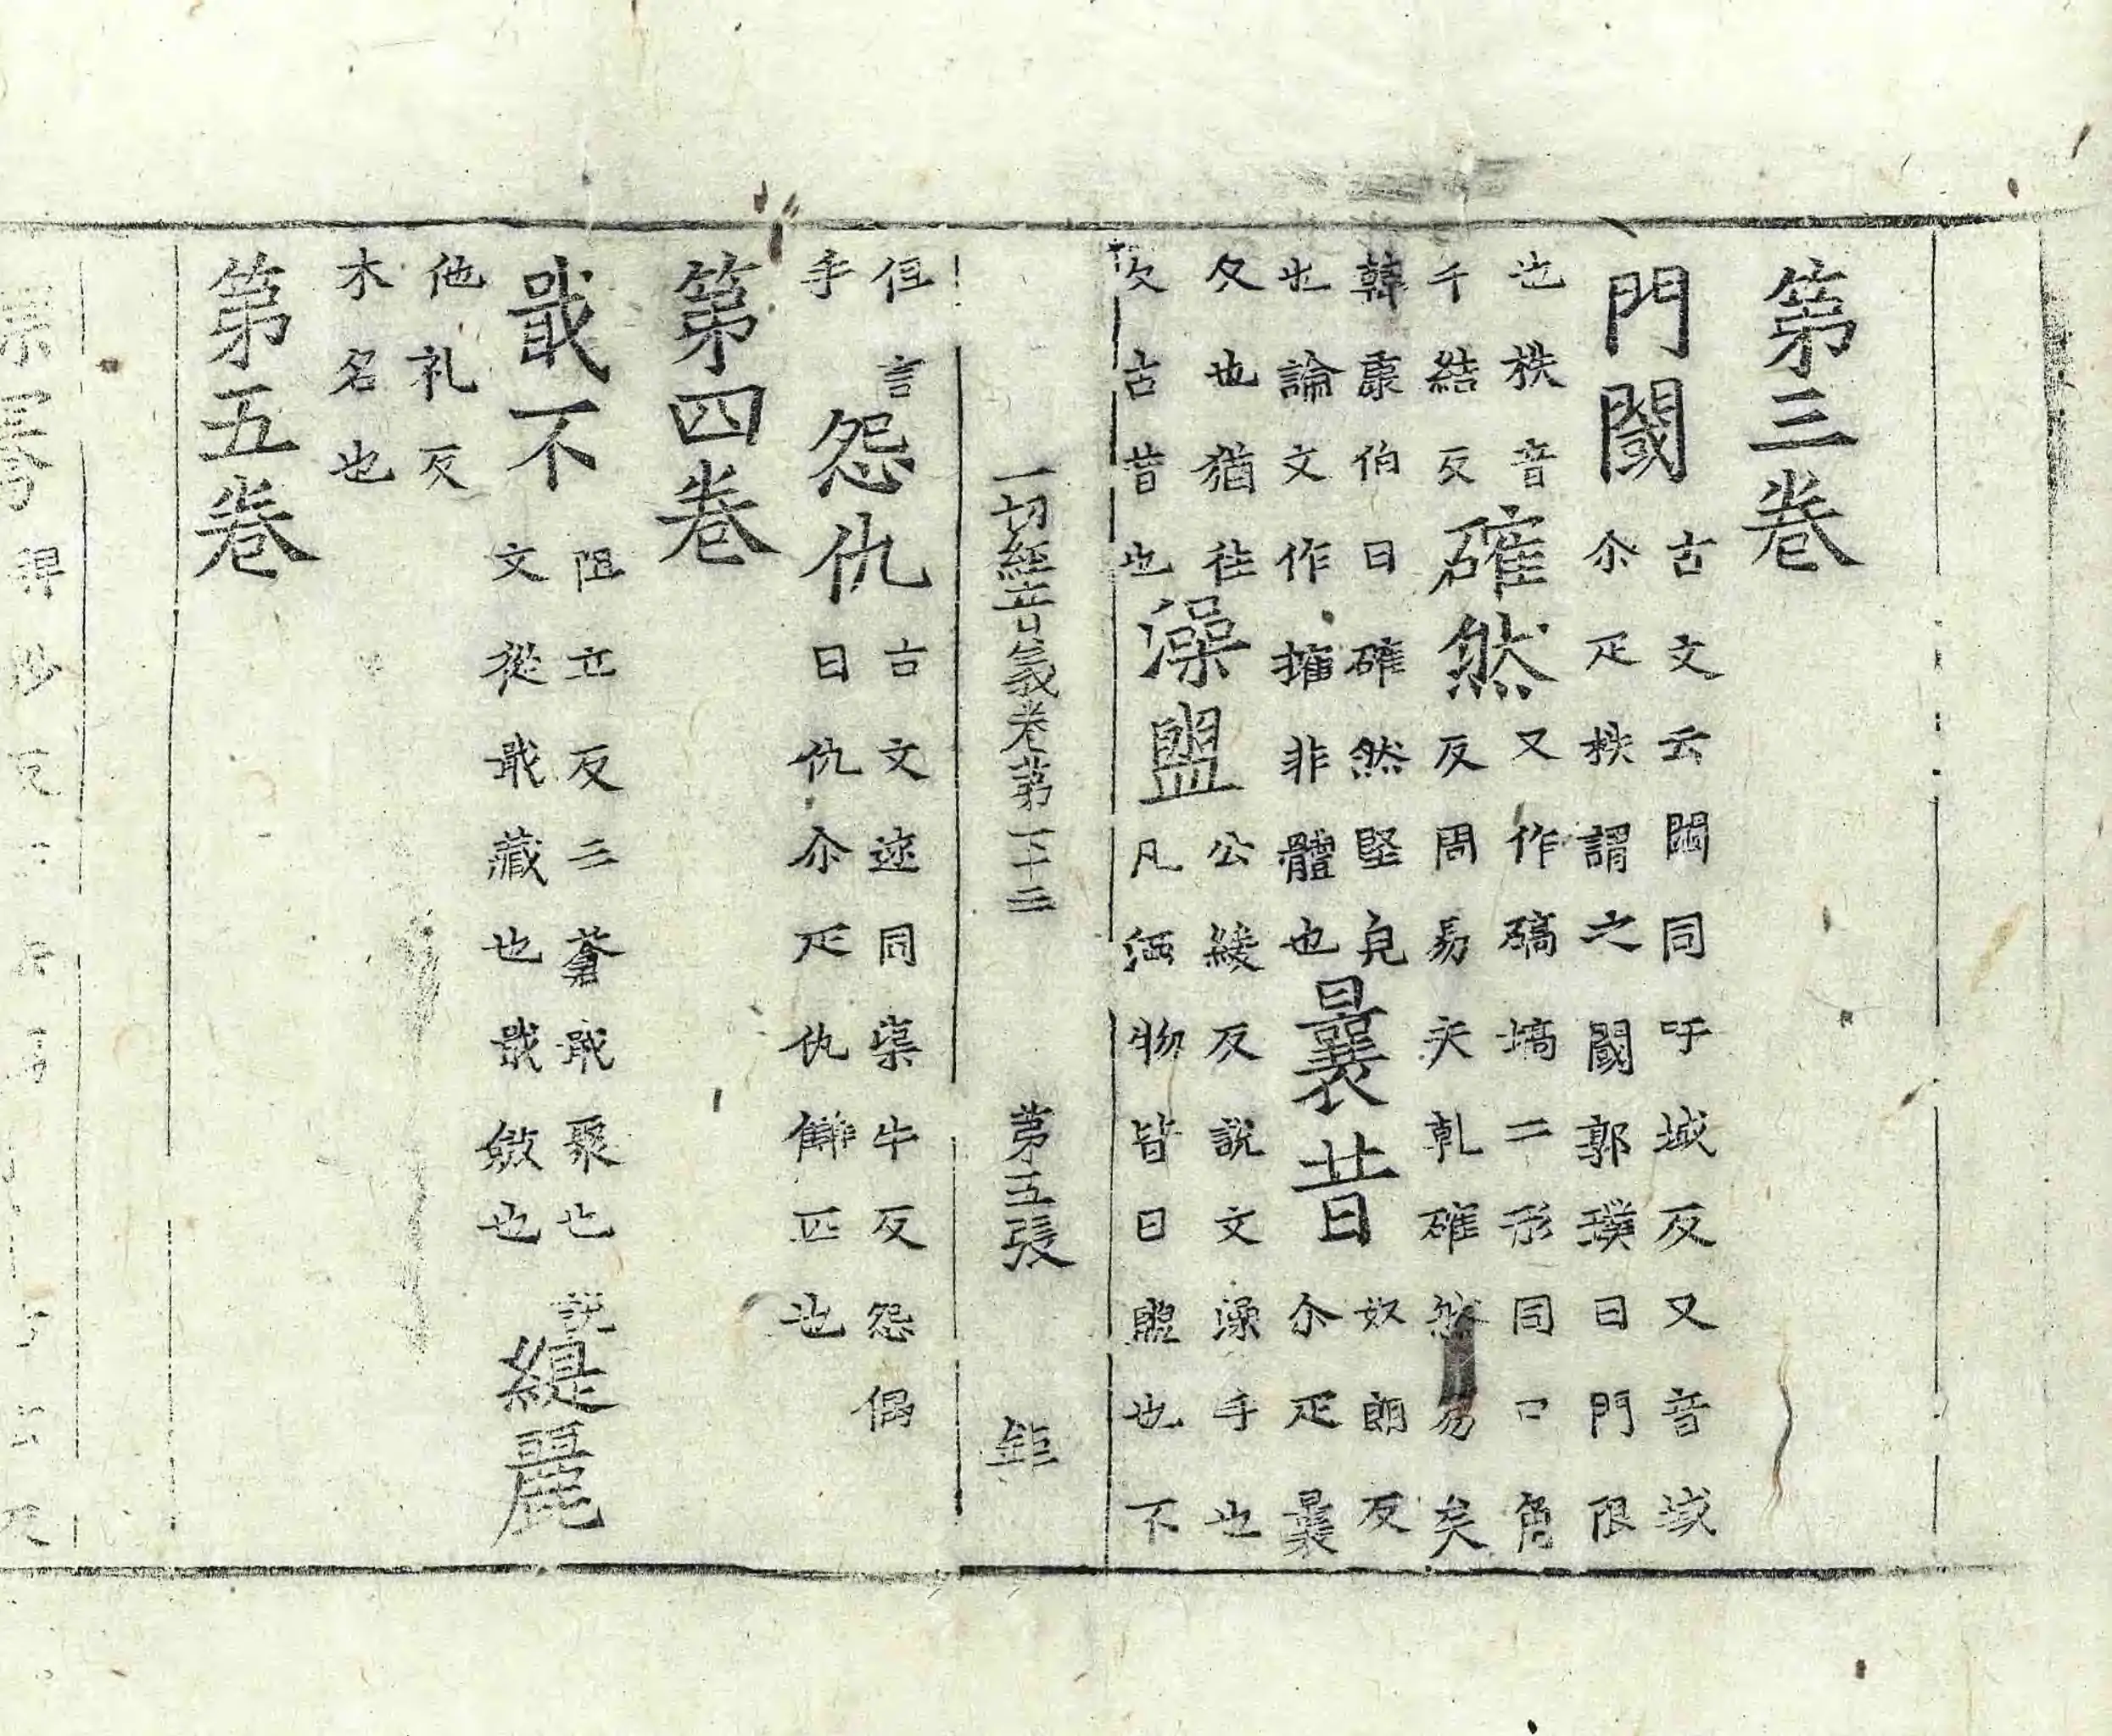 第三卷
門閾
古文云閾同呼域反又音域
尒疋柣謂之閾郭璞曰門限
也柣音
千結反
確然
又作碻塙二形同口角
反周易夫乾確然易矣
韓康伯曰確然堅皃
也論文作擁非體也
曩昔
奴朗反
尒疋曩
久也猶往
次古昔也
澡盥
公緩反說文澡手也
凡洒物皆曰盥也不
一切經音義卷第二十三
第五張
鉅
但言
手
怨仇
古文逑同渠牛反怨偶
曰仇尒疋仇讎匹也
第四卷
戢不
阻立反三蒼戢聚也說
文從戢藏也戢斂也
緹麗
他礼反
木名也
第五卷